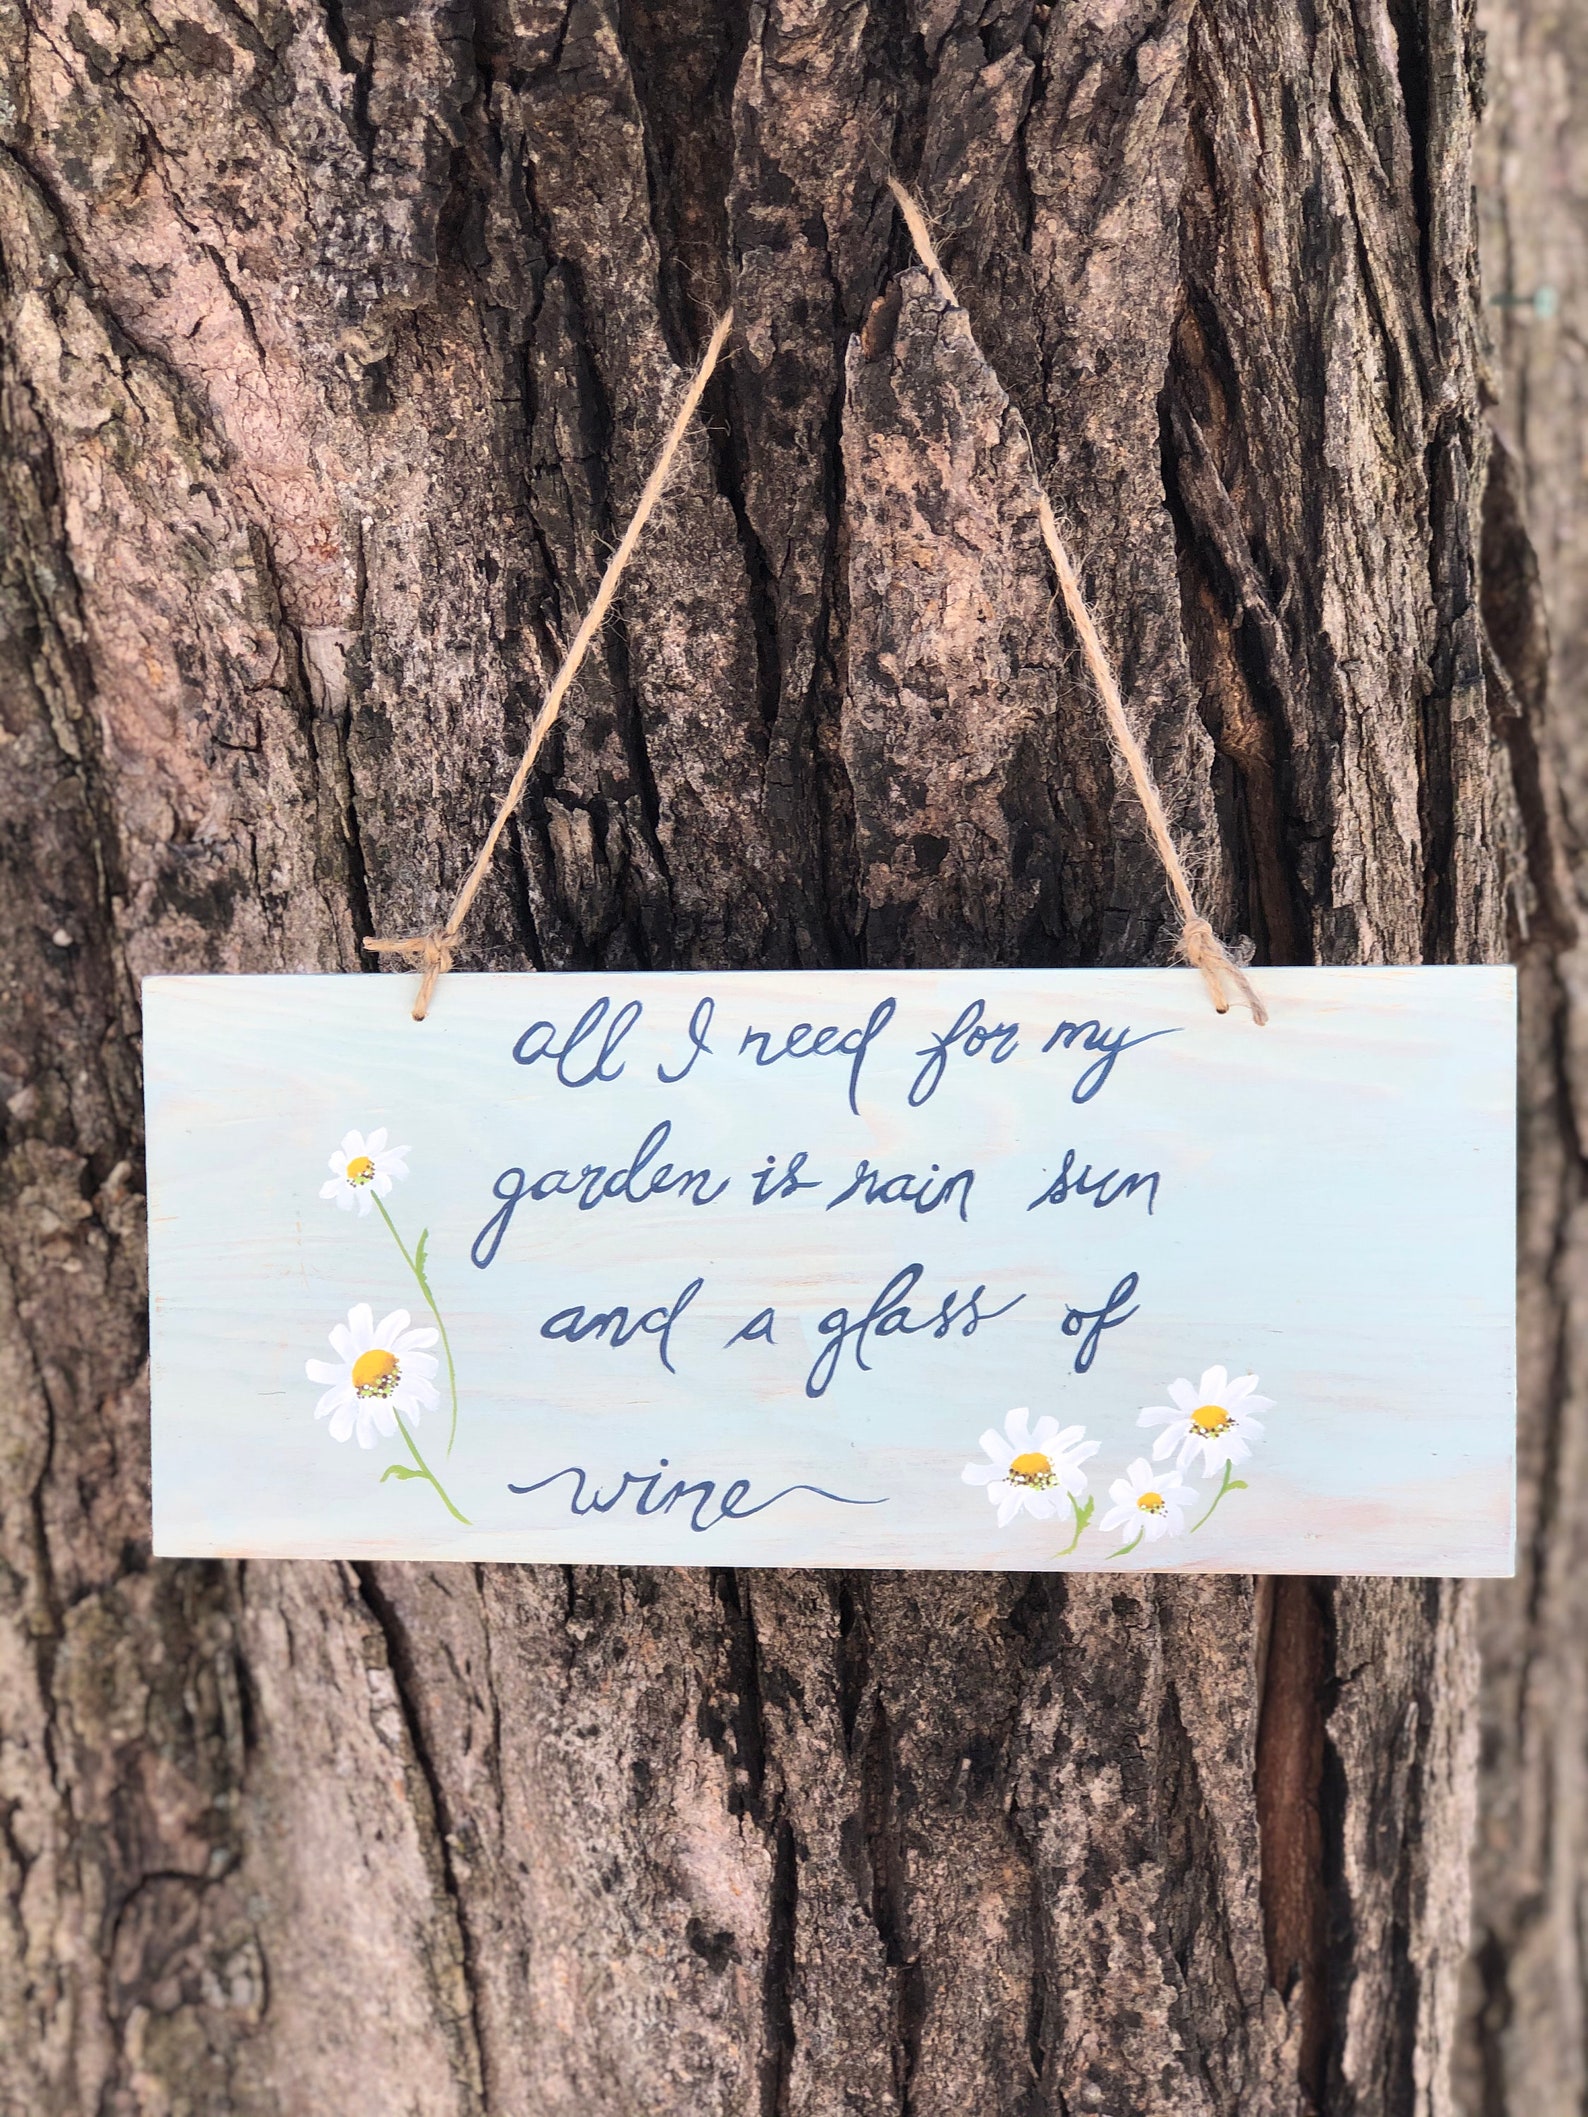 all I need for my
garden is rain sun
and a glass of
wine